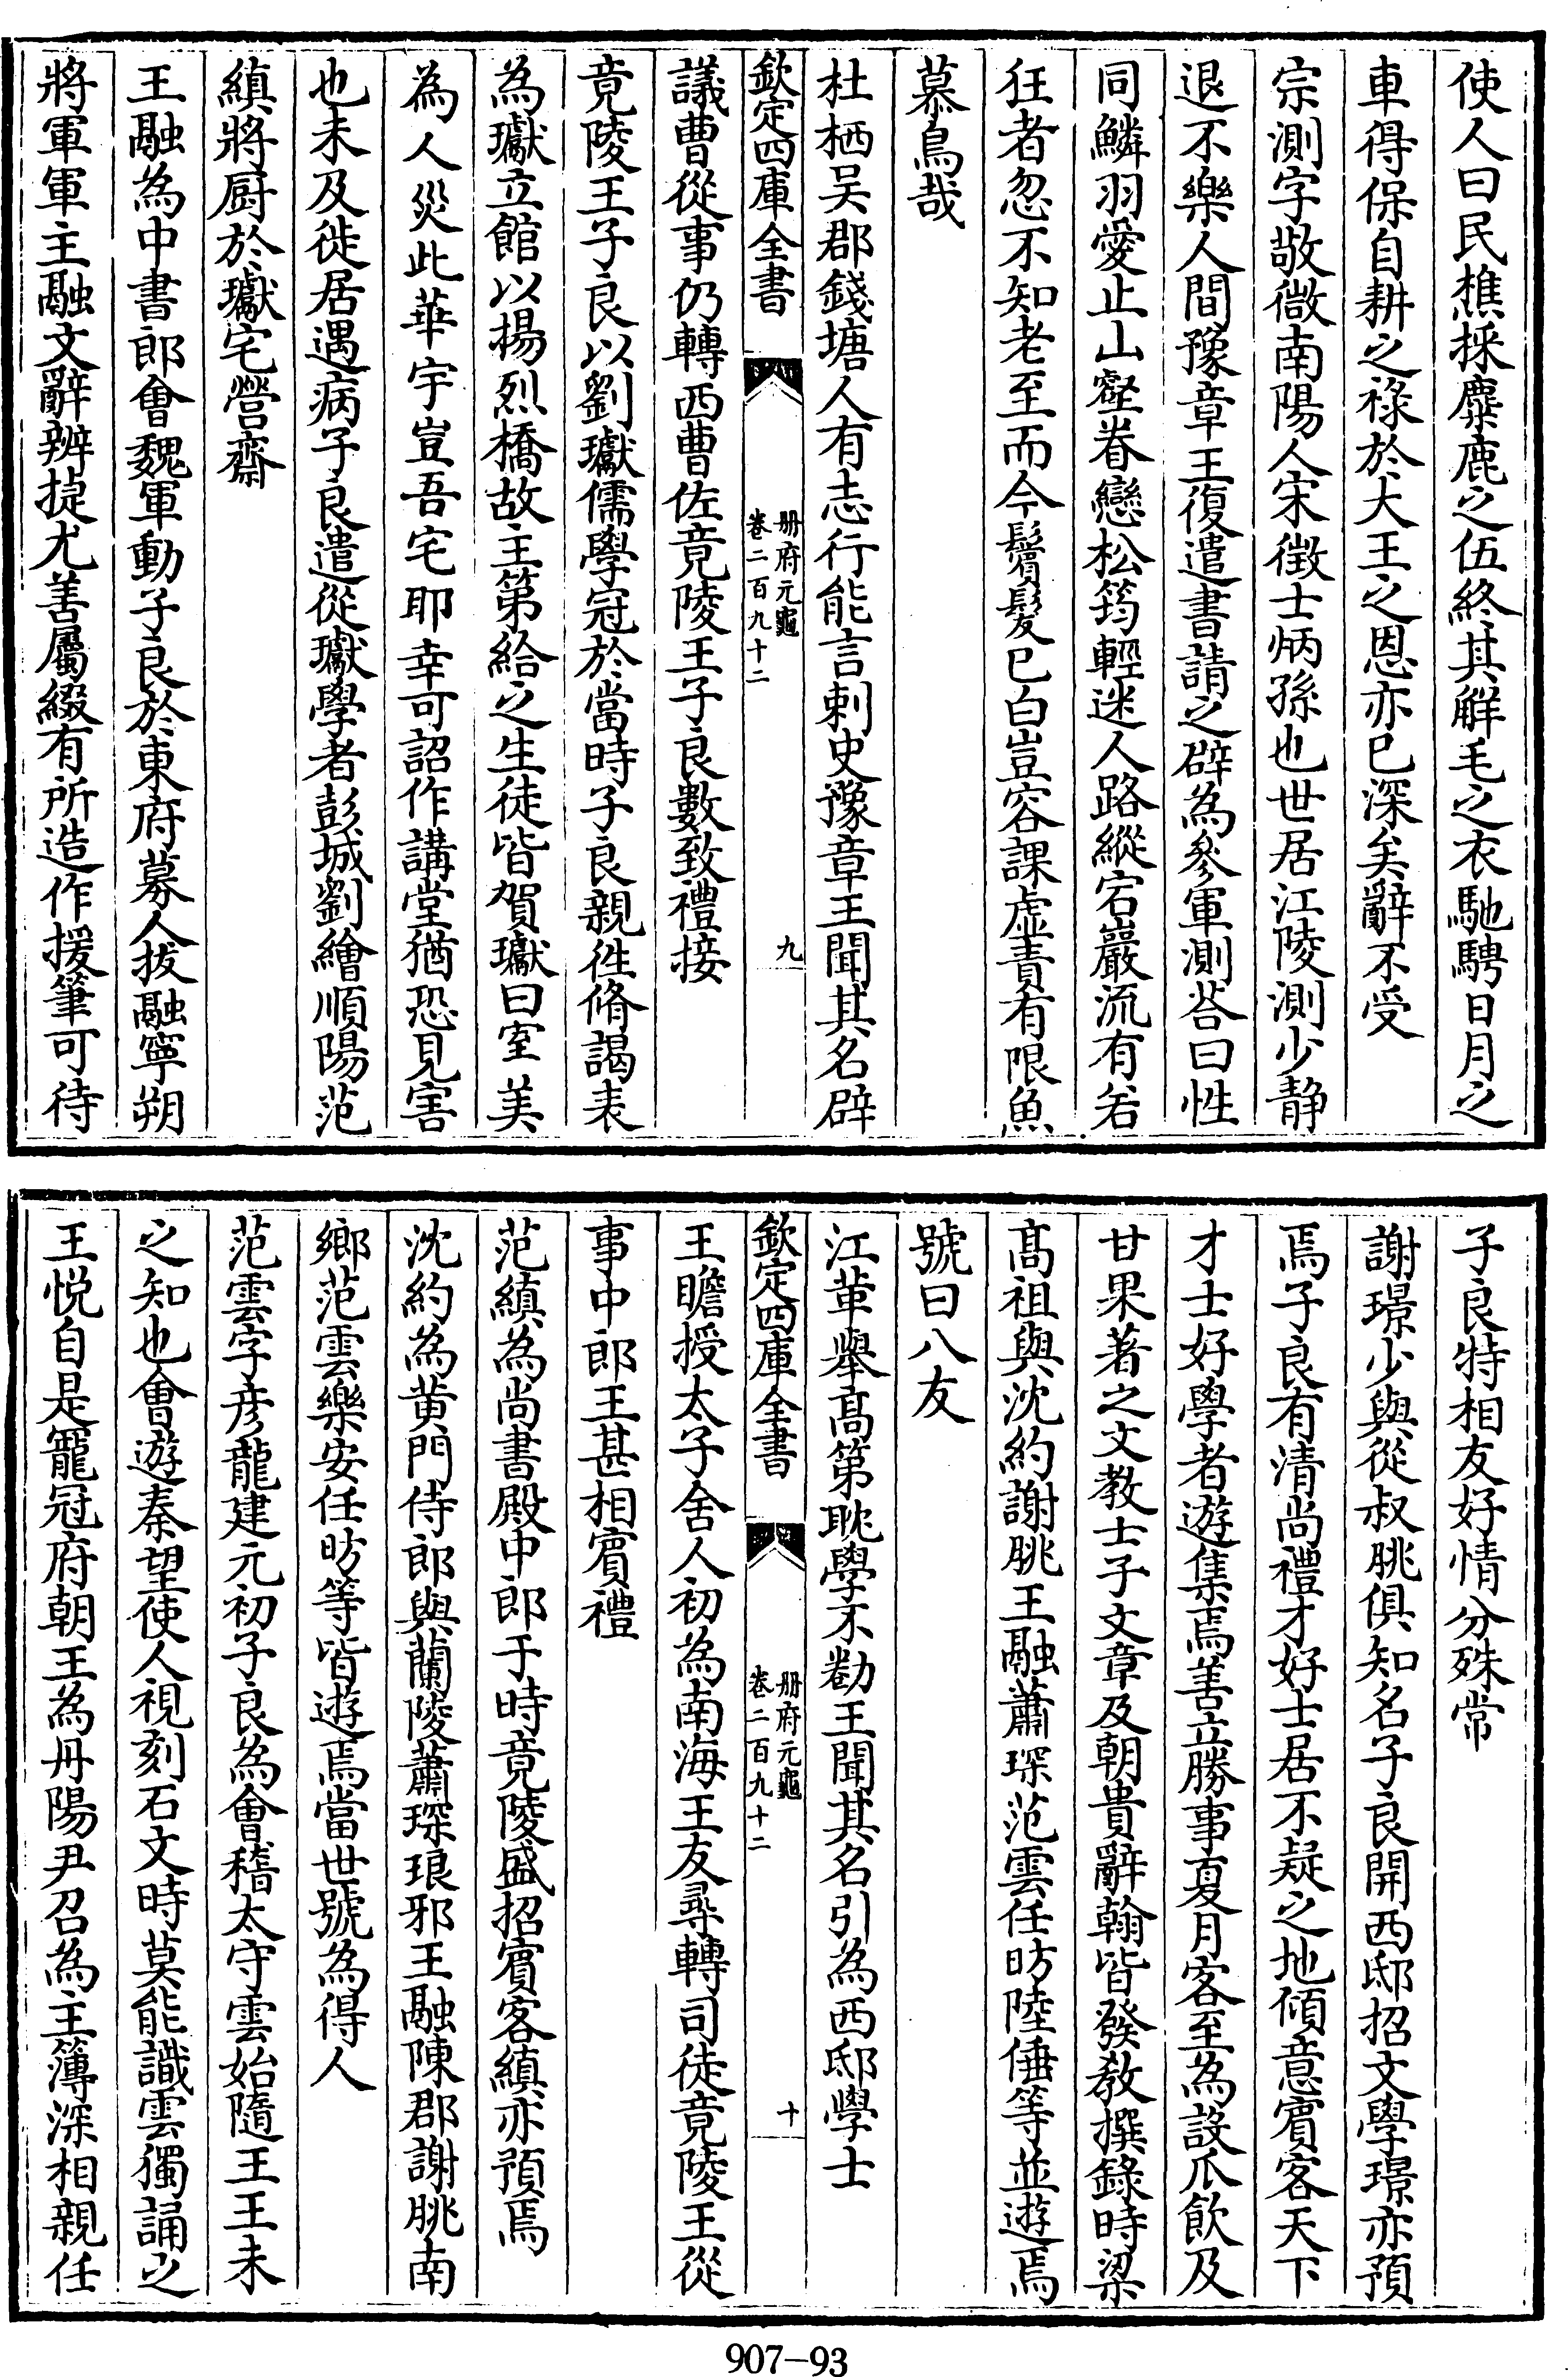 使人曰民樵採麋鹿之伍終其觧毛之衣馳騁日月之
車得保自耕之祿於大王之恩亦已深矣辭不受
宗測字敬微南陽人宋徴士炳孫也世居江陵測少静
退不樂人間豫章王復遣書請之辟為參軍測荅曰性
同鱗羽愛止山壑眷戀松筠輕迷人路縱宕巖流有若
狂者忽不知老至而今鬢髮已白豈容課虛責有限魚
慕鳥哉
杜栖吳郡錢塘人有志行能言刺史豫章王聞其名辟
欽定四庫全書
册府元龜
卷二百九十二
九
議曹從事仍轉西曹佐竟陵王子良數致禮接
竟陵王子良以劉瓛儒學冠於當時子良親徃脩謁表
為瓛立館以揚烈橋故主第給之生徒皆賀瓛曰室美
為人災此華宇豈吾宅耶幸可詔作講堂猶恐見害
也未及徙居遇病子良遣從瓛學者彭城劉繪順陽范
縝將厨於瓛宅營齋
王融為中書郎會魏軍動子良於東府募人拔融寧朔
將軍軍主融文辭辨捷尤善屬綴有所造作援筆可待
子良特相友好情分殊常
謝璟少與從叔朓俱知名子良開西邸招文學璟亦預
焉子良有清尚禮才好士居不疑之地傾意賓客天下
才士好學者遊集焉善立勝事夏月客至為設瓜飲及
甘果著之文教士子文章及朝貴辭翰皆發教撰錄時梁
高祖與沈約謝朓王融蕭琛范雲任昉陸倕等並遊焉
號曰八友
江革舉高第耽學不勌王聞其名引為西邸學士
欽定四庫全書
册府元龜
卷二百九十二
十
王瞻授太子舍人初為南海王友尋轉司徒竟陵王從
事中郎王甚相賓禮
范縝為尚書殿中郎于時竟陵盛招賓客縝亦預焉
沈約為黄門侍郎與蘭陵蕭琛琅邪王融陳郡謝朓南
鄉范雲樂安任昉等皆遊焉當世號為得人
范雲字彦龍建元初子良為會稽太守雲始隨王王未
之知也會遊秦望使人視刻石文時莫能識雲獨誦之
王悦自是寵冠府朝王為丹陽尹召為主簿深相親任
907-93